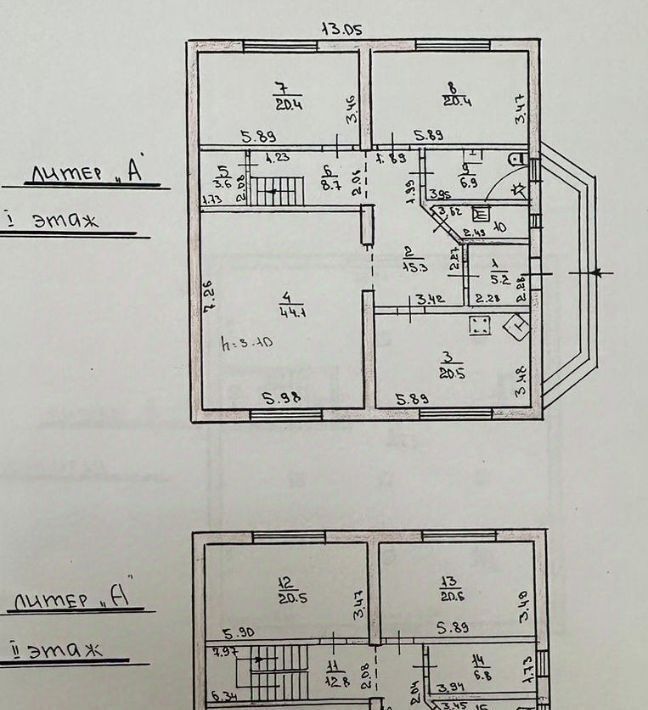 13.05
ЛИТЕР „А"
I ЭТАЖ
7
20.4
3.46
5.89
8
20.4
3.47
5.89
5
3.6
1.73
2.08
1.23
6
8.7
2.06
1.89
1.99
9
6.9
3.95
3.62
10
2.43
2
15.3
2.27
3.42
1
5.2
2.28
2.28
7.26
4
44.1
h=3.10
5.98
3
20.5
3.48
5.89
ЛИТЕР „А"
II ЭТАЖ
12
20.5
3.47
5.90
13
20.6
3.49
5.89
7.97
6.34
11
12.8
2.08
2.04
14
6.8
1.73
3.94
3.45
15